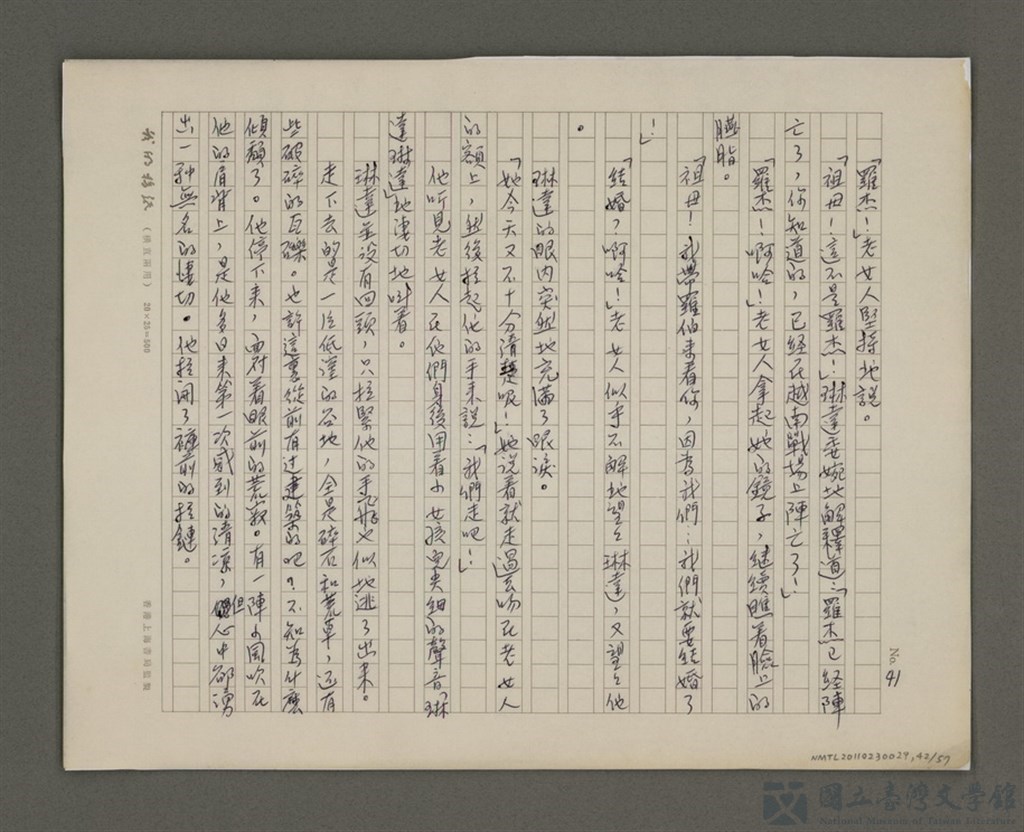 No. 41
「羅杰！」老女人堅持地說。
「祖母！這不是羅杰！」琳達委婉地解釋道：「羅杰已經陣
亡了，你知道的，已經在越南戰場上陣亡了！」
「羅杰！啊哈！」老女人拿起她的鏡子，继續瞧着臉上的
胭脂。
「祖母！我帶羅伯来看你，因為我們：我們就要结婚了
！」
「结婚？啊哈！」老女人似乎不解地望望琳達，又望望他
。
琳達的眼内突然地充滿了眼淚。
「她今天又不十分清楚呢！」她说着就走過去吻在老女人
的額上，然後拉起他的手来說：「我們走吧！」
他听見老女人在他們身後用着小女孩兒尖细的聲音「琳
達琳達」地凄切地叫着。
琳達並没有回頭，只拉緊他的手飛也似地逃了出来。
走下去的是一片低漥的谷地，全是碎石和荒草，还有
些破碎的瓦礫。也許這裏從前有过建築的吧？不知為什麼
傾頹了。他停下来，面对着眼前的荒寂。有一陣小風吹在
他的肩背上，是他多日来第一次感到的清凉，但心中卻湧
出一种無名的凄切。他拉開了褲前的拉鏈。
我的稿紙 （橫直兩用） 20×25=500
香港上海書局監製
NMTL20110230029,42/57
國立臺灣文學館
National Museum of Taiwan Literature